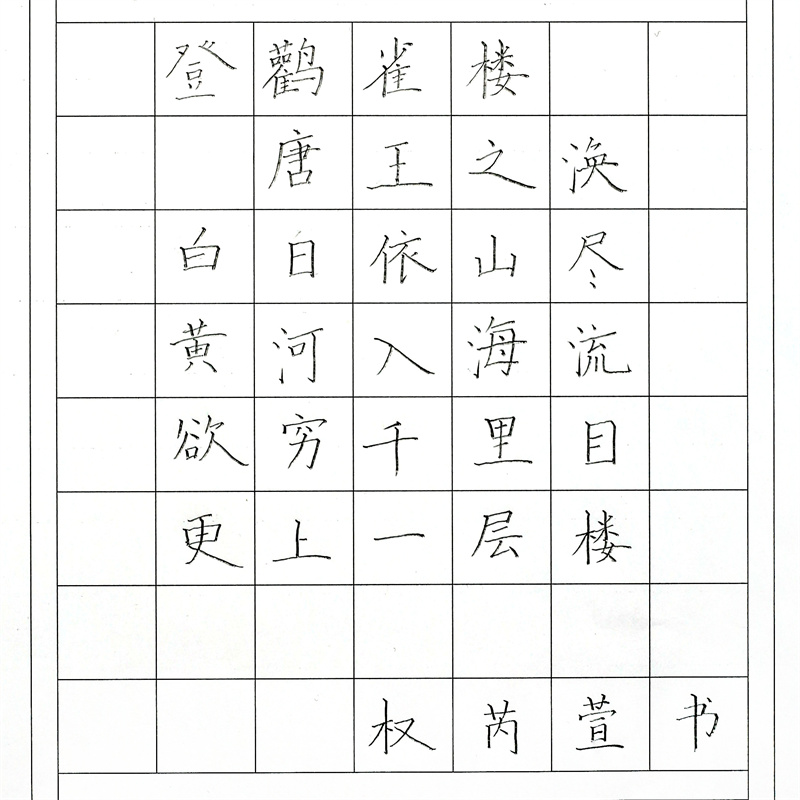 登鹳雀楼
唐王之涣
白日依山尽
黄河入海流
欲穷千里目
更上一层楼
权芮萱书